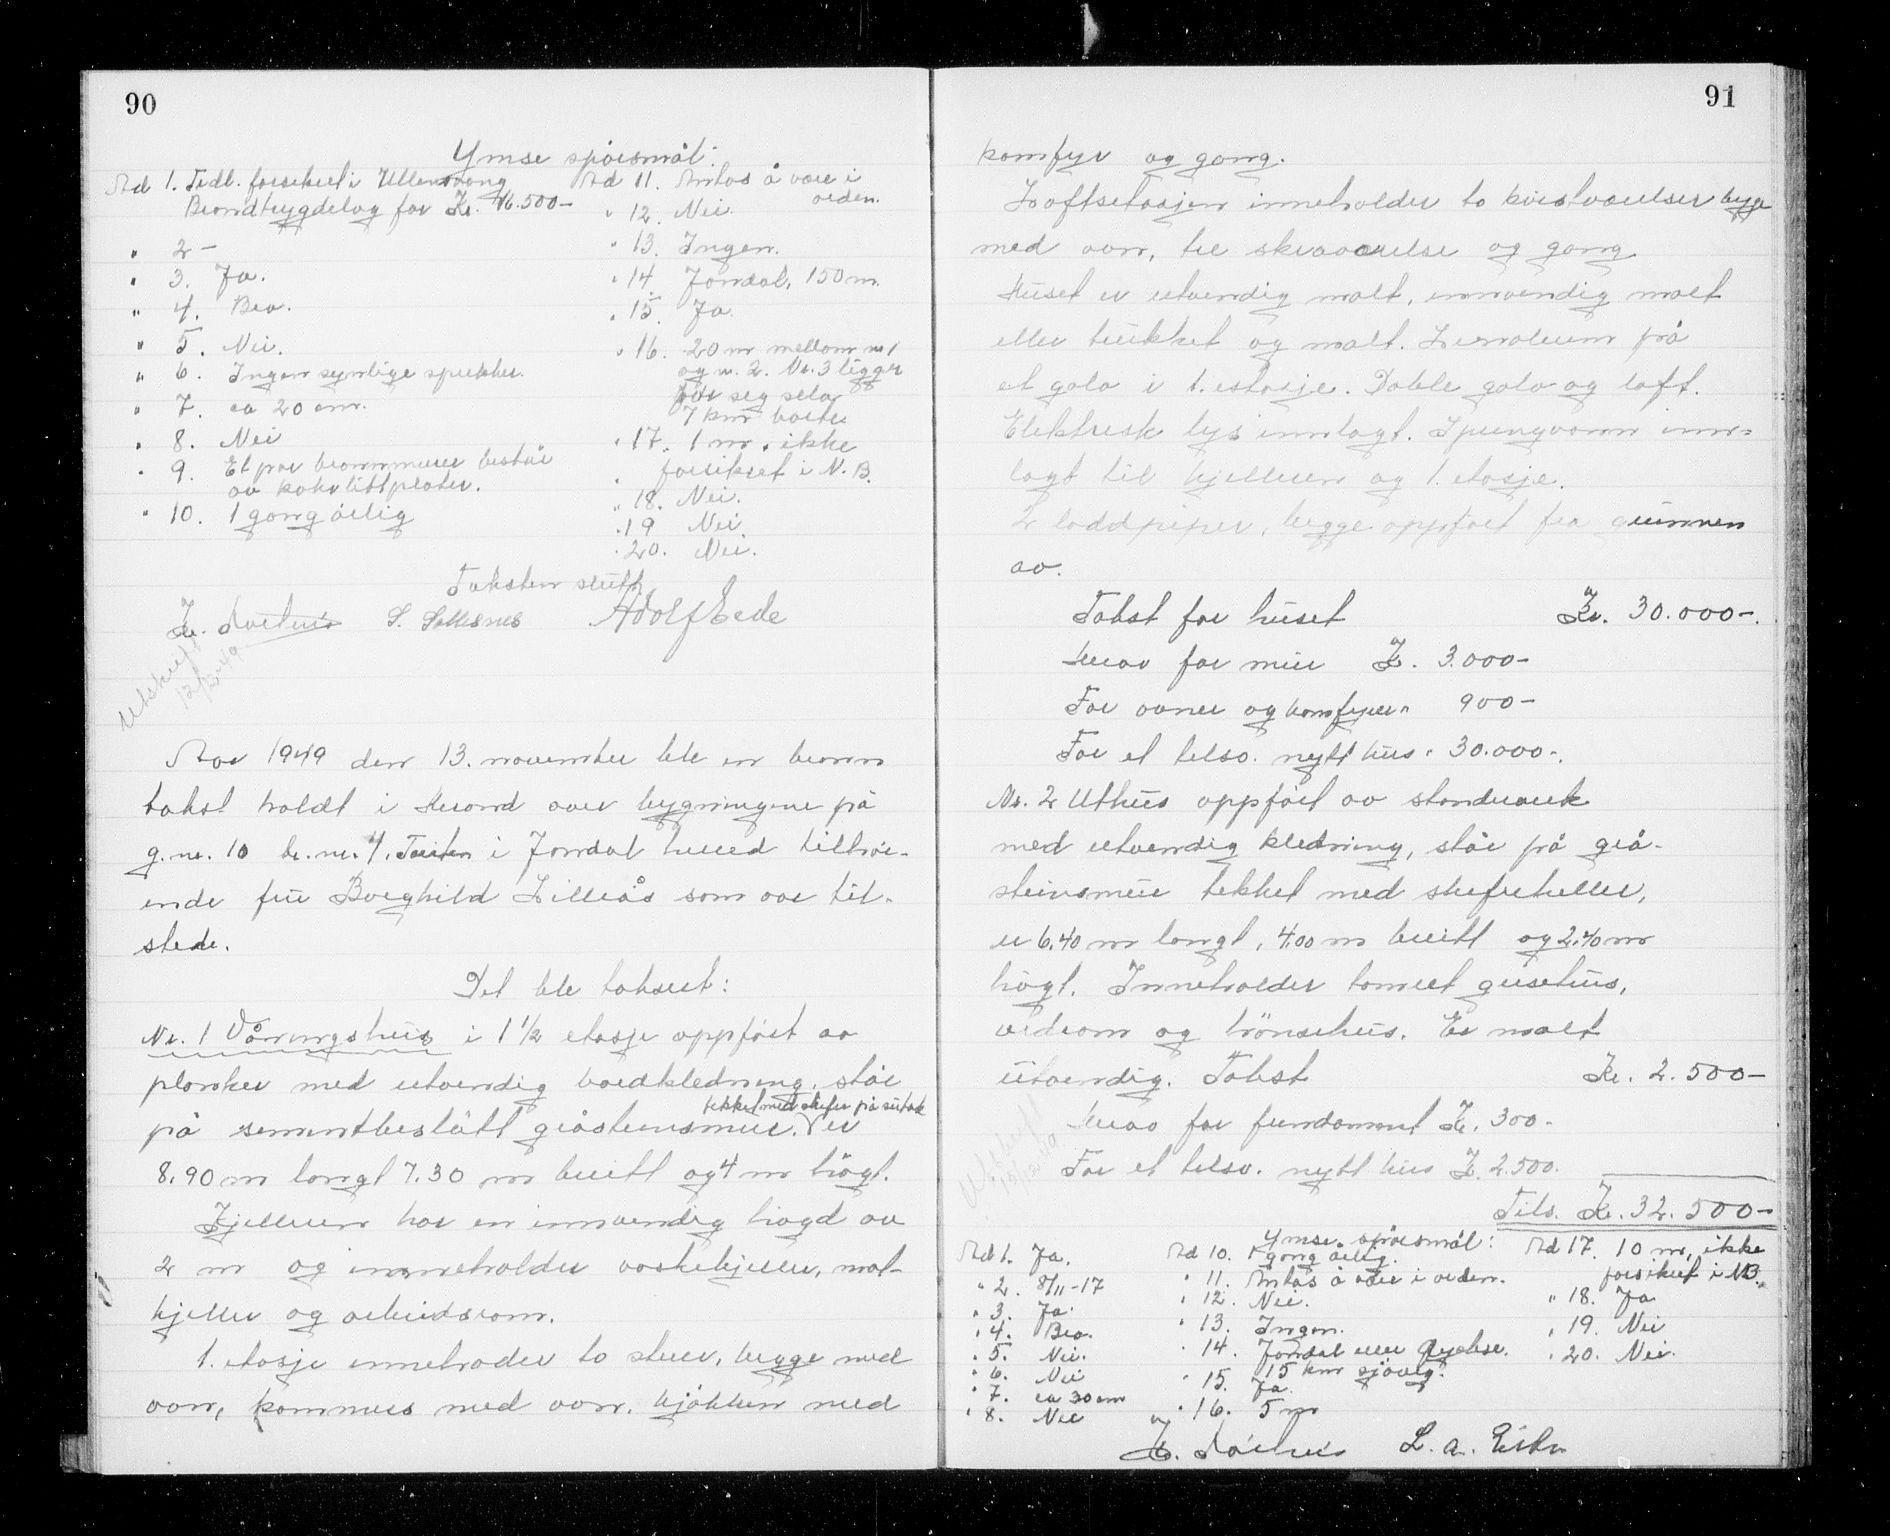 90
Ymse spörsmål:
Ad 1. Tidl. forsikret i Ullensvang
Branntrygdelag for Kr. 16.500-
" 2 -
" 3. Ja.
" 4. Bra.
" 5. Nei.
" 6. Ingen synlige sprekker.
" 7. ca 20 cm.
" 8. Nei
" 9. Et par brannmurer består
av kokolittplater.
" 10. 1 gang årlig
Ad 11. Antas å være i
orden.
" 12. Nei.
" 13. Ingen.
" 14 Jondal, 150 m.
" 15. Ja.
" 16. 20 m mellom nr 1
og nr. 2. Nr. 3 ligger
for seg selv
7 km borte
" 17. 1 m, ikke
forsikret i N.B.
" 18. Nei.
" 19 Nei
" 20. Nei.
Taksten slutt.
S. Selsnes Adolf Eide
Utskrift
12/12-49
Aar 1949 den 13. november ble en brann
takst holdt i Herand over bygningene på
g.nr. 10 br.nr. 4, i Jondal herred tilhör-
ende fru Borghild Lilleås som var til-
stede.
Det ble taksert:
Nr. 1 Våningshus i 1 1/2 etasje oppfört av
planker med utvendig bordkledning, står
tekket med skifer på sutak
på sementbeslått gråsteinsmur. V er
8.90 m langt 7.30 m breitt og 4 m högt.
Kjelleren har en innvendig högd av
2 m og inneholder vaskekjeller, mat-
kjeller og arbeidsrom.
1. etasje inneholder to stuer, begge med
ovn, kammers med ovn, kjökken med
91
komfyr og gang.
Loftsetasjen inneholder to kvistværelser begge
med ovn, tre skråværelse og gang
Huset er utvendig malt, innvendig malt
eller trukket og malt. Linoleum på
et golv i 1. etasje. Doble golv og loft.
Elektrisk lys innlagt. Springvann inn-
lagt til kjelleren og 1. etasje.
2 loddpiper, begge oppfört fra grunnen
av.
Takst for huset Kr. 30.000-.
Herav for mur Kr. 3.000-
For ovner og komfyrer " 900-
For et tilsv. nytt hus " 30.000-.
Nr. 2 Uthus oppfört av standverk
med utvendig kledning, står på grå-
steinsmur tekket med skiferheller,
er 6.40 m langt, 4.00 m breitt og 2.40 m
högt. Inneholder tomret grisehus,
vedrom og hönsehus. Er malt
utvendig. Takst Kr. 2.500-
Herav for fundament Kr. 300-
For et tilsv. nytt hus Kr. 2.500.
Utskrift
15/12-49
Tils. Kr. 32.500-
Ymse spörsmål:
Ad 1. Ja.
" 2. 8/11-17
" 3. Ja.
" 4. Bra.
" 5. Nei.
" 6. Nei
" 7. ca 30 cm
" 8. Nei
Ad 10. 1 gang årlig.
" 11. Antas å være i orden.
" 12. Nei.
" 13. Ingen.
" 14. Jondal eller
15 km sjöveg.
" 15. Ja.
" 16. 5 m
Ad 17. 10 m, ikke
forsikret i N.B.
" 18. Ja
" 19. Nei
" 20. Nei.
L. A. Eide